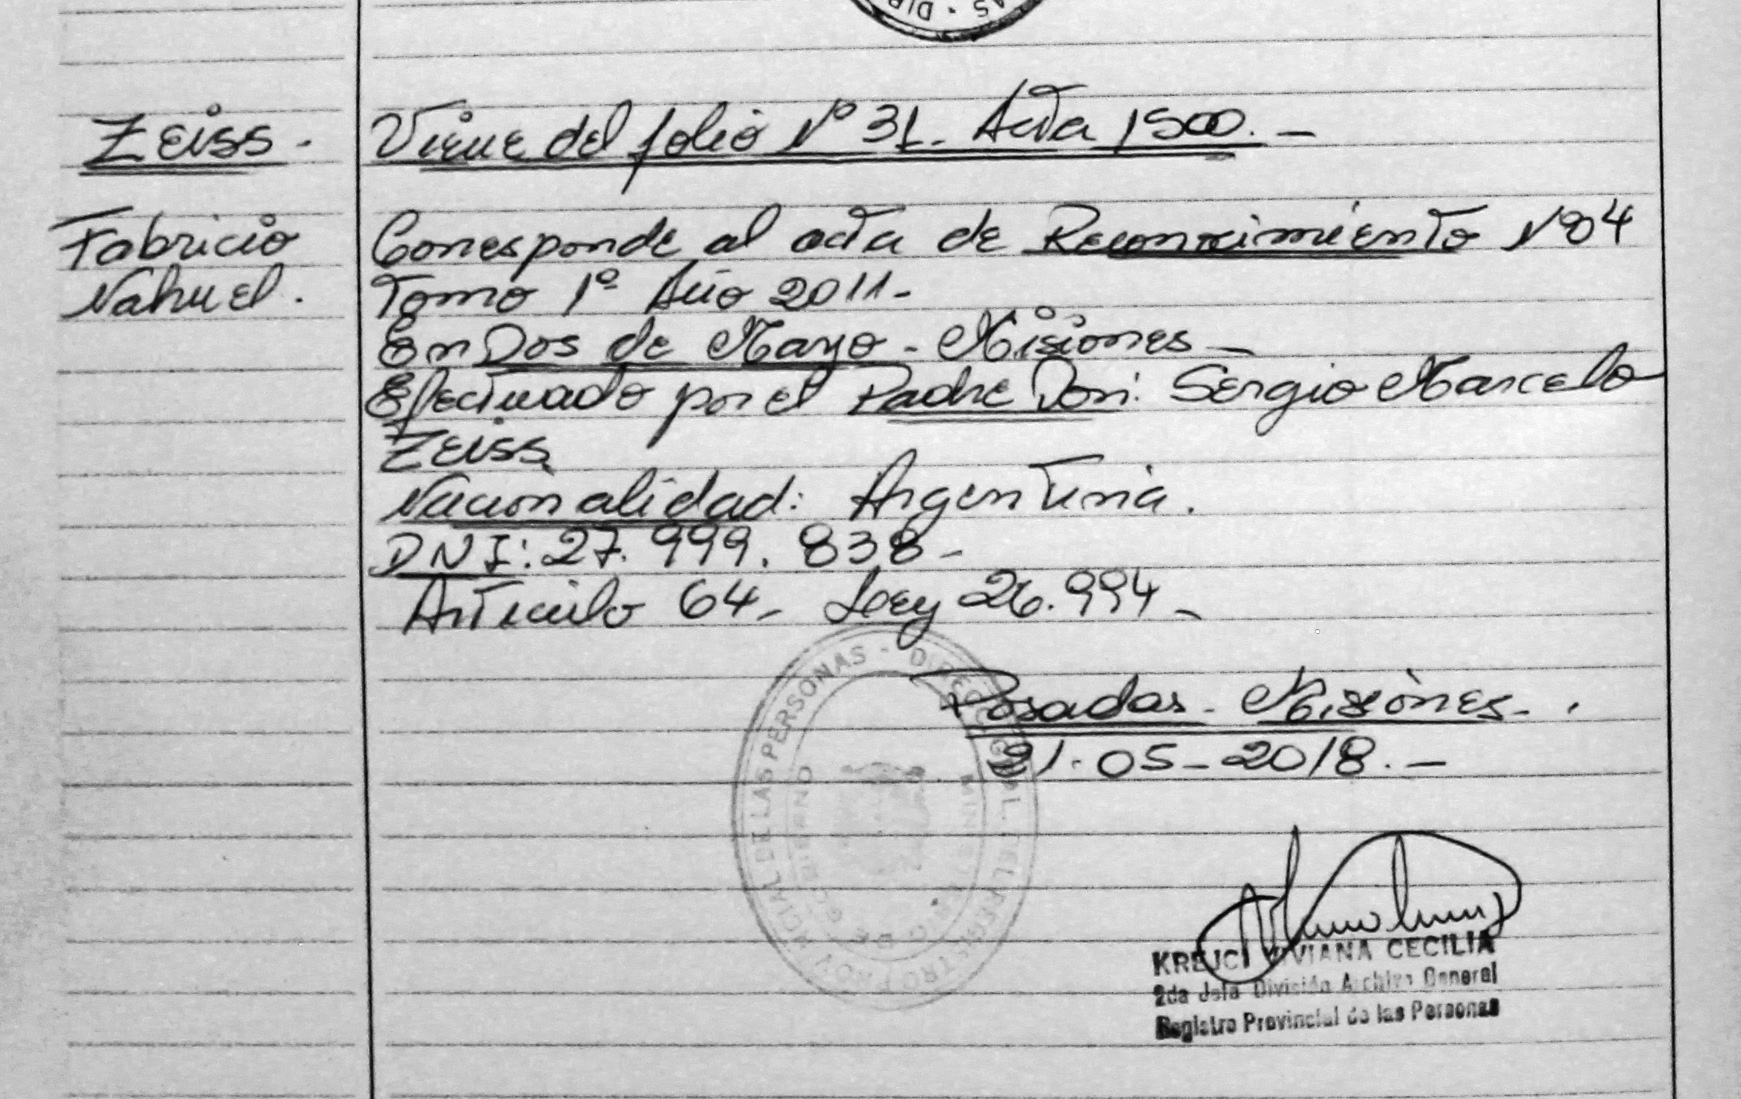 Zeiss.
Fabricio
Nahuel.
Viene del folio Nº 31. Acta 1500. -
Corresponde al acta de Reconocimiento Nº 04
Tomo 1º Año 2011.-
En Dos de Mayo - Misiones -
Efectuado por el Padre Don: Sergio Marcelo
Zeiss
Nacionalidad: Argentina.
DNI: 27.999.838-
Artículo 64- Ley 26.994-
Posadas - Misiones - .
21.05-2018.-
DIRECC. GRAL. DEL REGISTRO PROVINCIAL DE LAS PERSONAS -
MINISTERIO DE GOBIERNO
KREJCI VIVIANA CECILIA
2da Jefa División Archivo General
Registro Provincial de las Personas